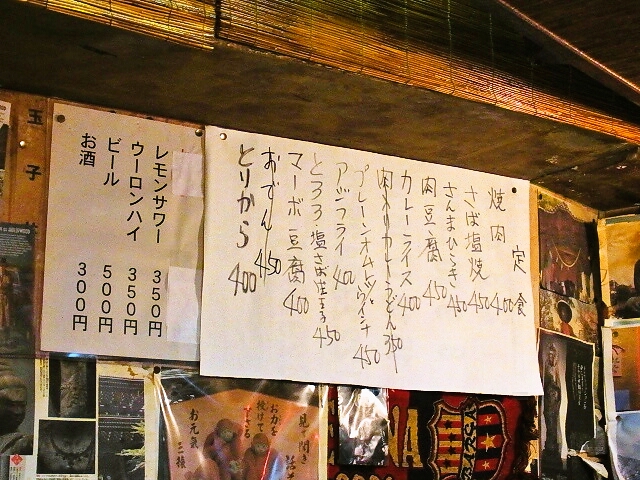 玉子
レモンサワー 350円
ウーロンハイ 350円
ビール 500円
お酒 300円
定食
焼肉 400
さば塩焼 450
さんまひらき 450
肉豆腐 450
カレーライス 400
肉入りカレーうどん 350
プレーンオムレツとウインナ 450
アジフライ 400
とろろ 塩さば定食 450
マーボ豆腐 400
おでん 450
とりから 400
見聞き
お力を
授けて
下さる
お元気
三猿